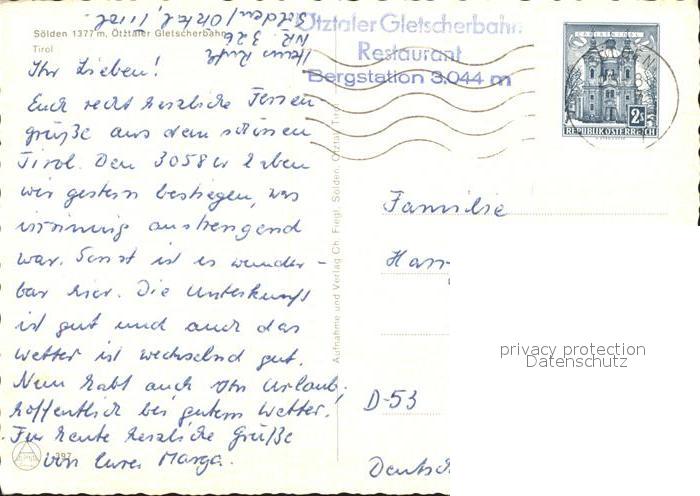 Sölden 1377 m, Ötztaler Gletscherbahn
Tirol
Sölden / Ötztal
NR. 326
Ihr Lieben!
Euch recht herzliche Ferien-
grüße aus dem schönen
Tirol. Den 3058er haben
wir gestern bestiegen, was
anstrengend
war. Sonst ist es wunder-
bar hier. Die Unterkunft
ist gut und auch das
Wetter ist wechselnd gut.
Nun habt auch Ihr Urlaub,
hoffentlich bei gutem Wetter!
Für heute herzliche Grüße
von Eurer Marga.
397
Aufnahme und Verlag Ch. Fiegl, Sölden, Ötztal, Tirol
Ötztaler Gletscherbahn
Restaurant
Bergstation 3.044 m
2 S
REPUBLIK ÖSTERREICH
Familie
Han
D-53
Deutsc
privacy protection
Datenschutz